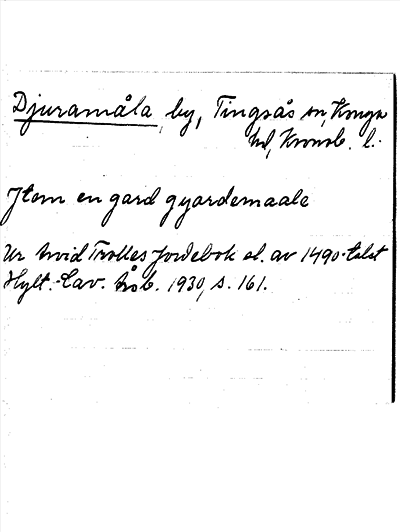 Djuramåla, by, Tingsås sn, Konga
hd, Kronob. l.
Jtem en gard gyardemaale
Ur Arvid Trolles Jordebok sl. av 1490-talet
Hylt.-Cav. håb. 1930, s. 161.